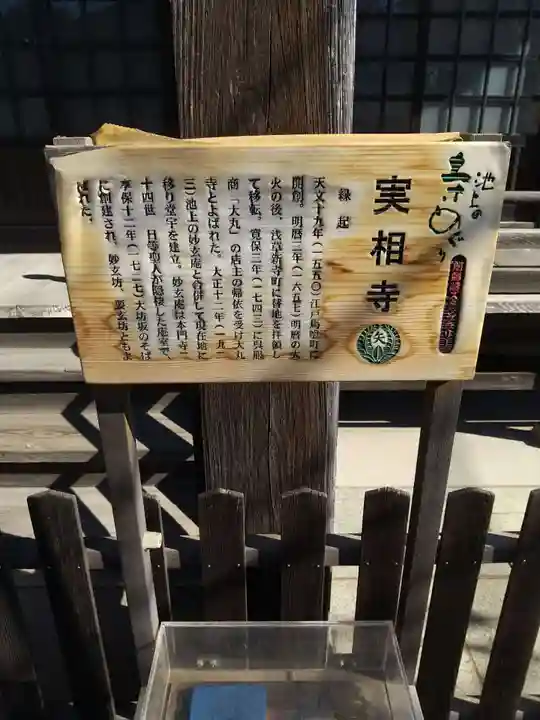 池上の
寺めぐり
実相寺
縁起
天文十九年(一五五〇)江戸馬喰町に
開創。明暦三年(一六五七)明暦の大
火の後、浅草新寺町に替地を拝領し
て移転。寛保三年(一七四三)に呉服
商「大丸」の店主の帰依を受け大丸
寺とよばれた。大正十一年(一九二
二)池上の妙玄庵と合併して現在地に
移り堂宇を建立。妙玄庵は本門寺二
十四世 日等聖人が隠棲した庵室で、
享保十二年(一七二七)大坊坂のそば
に創建され、妙玄坊、要玄坊ともよ
ばれた。